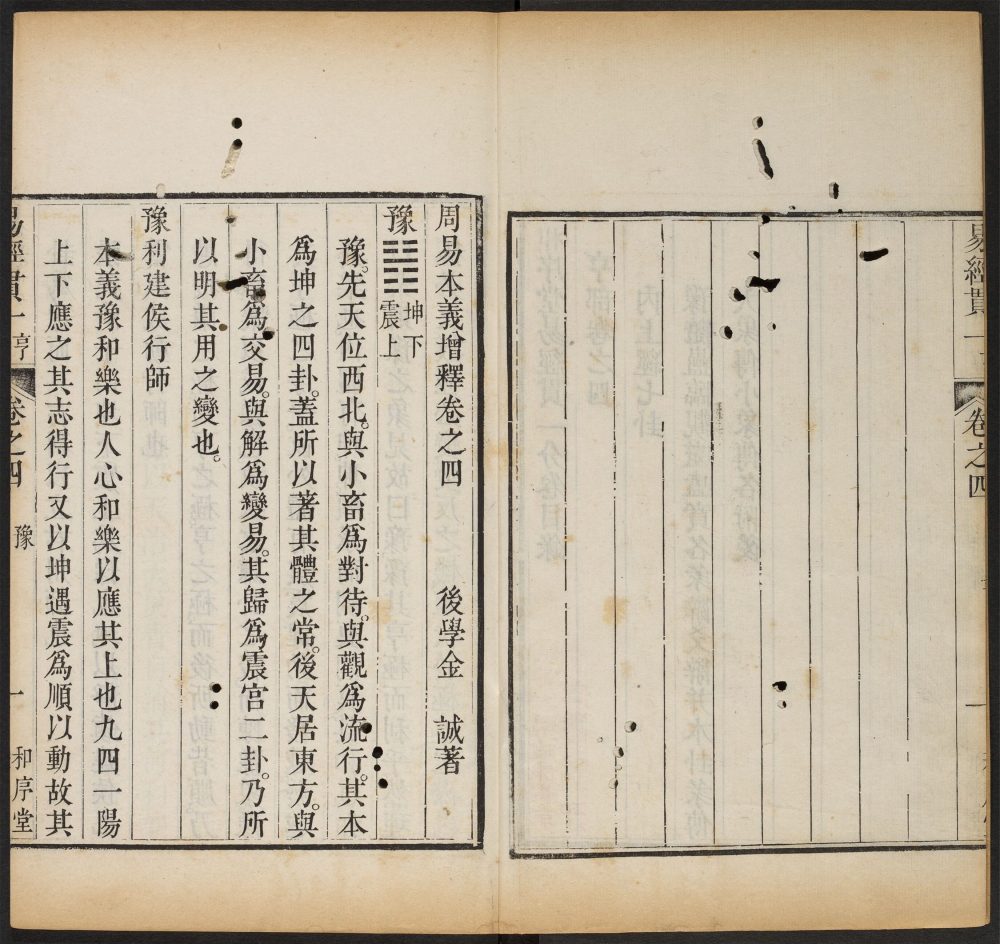 易經貫一
卷之四
一
周易本義增釋卷之四 後學金 誠著
豫 ䷏ 坤下 震上
豫。先天位西北。與小畜爲對待。與觀爲流行。其本
爲坤之四卦。蓋所以著其體之常。後天居東方。與
小畜爲交易。與解爲變易。其歸爲震宮二卦。乃所
以明其用之變也。
豫利建侯行師
本義豫和樂也人心和樂以應其上也九四一陽
上下應之其志得行又以坤遇震爲順以動故其
易經貫一 亨 卷之四 豫 一 和序堂